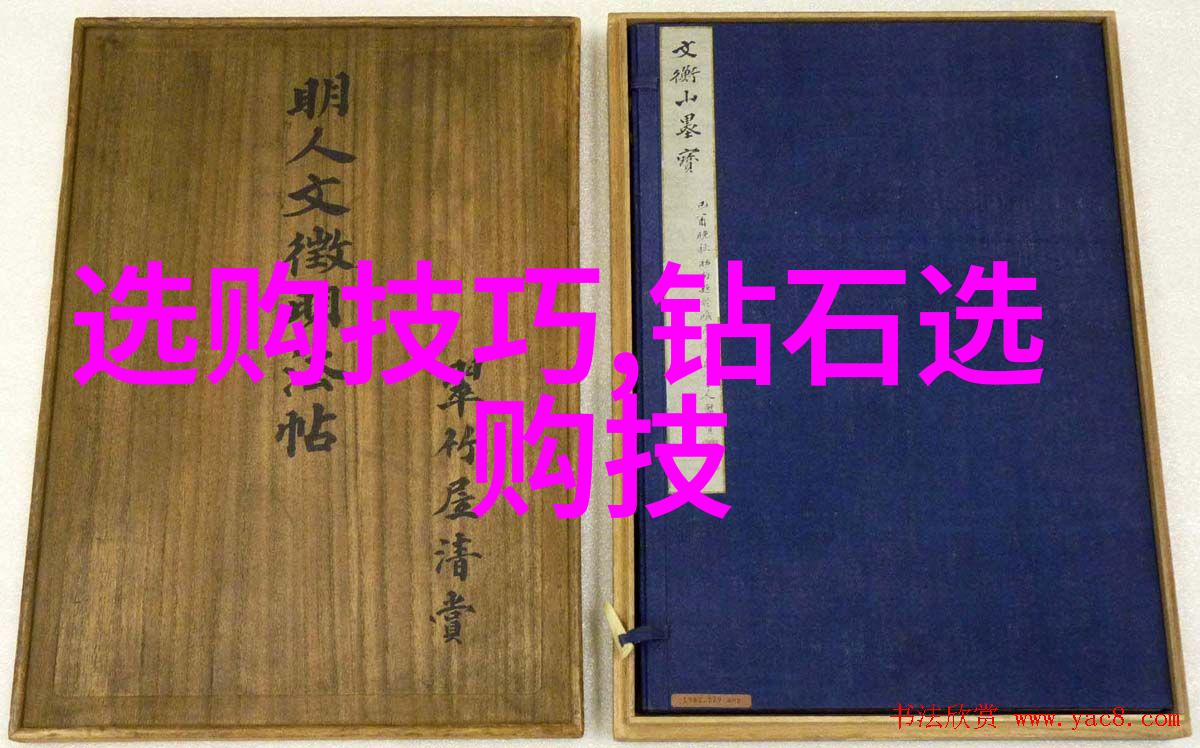 明人文徵明法帖
翠竹屋清賞
文衡山墨寶
选购技巧,钻石选
购技
书法欣赏 www.yac8.com